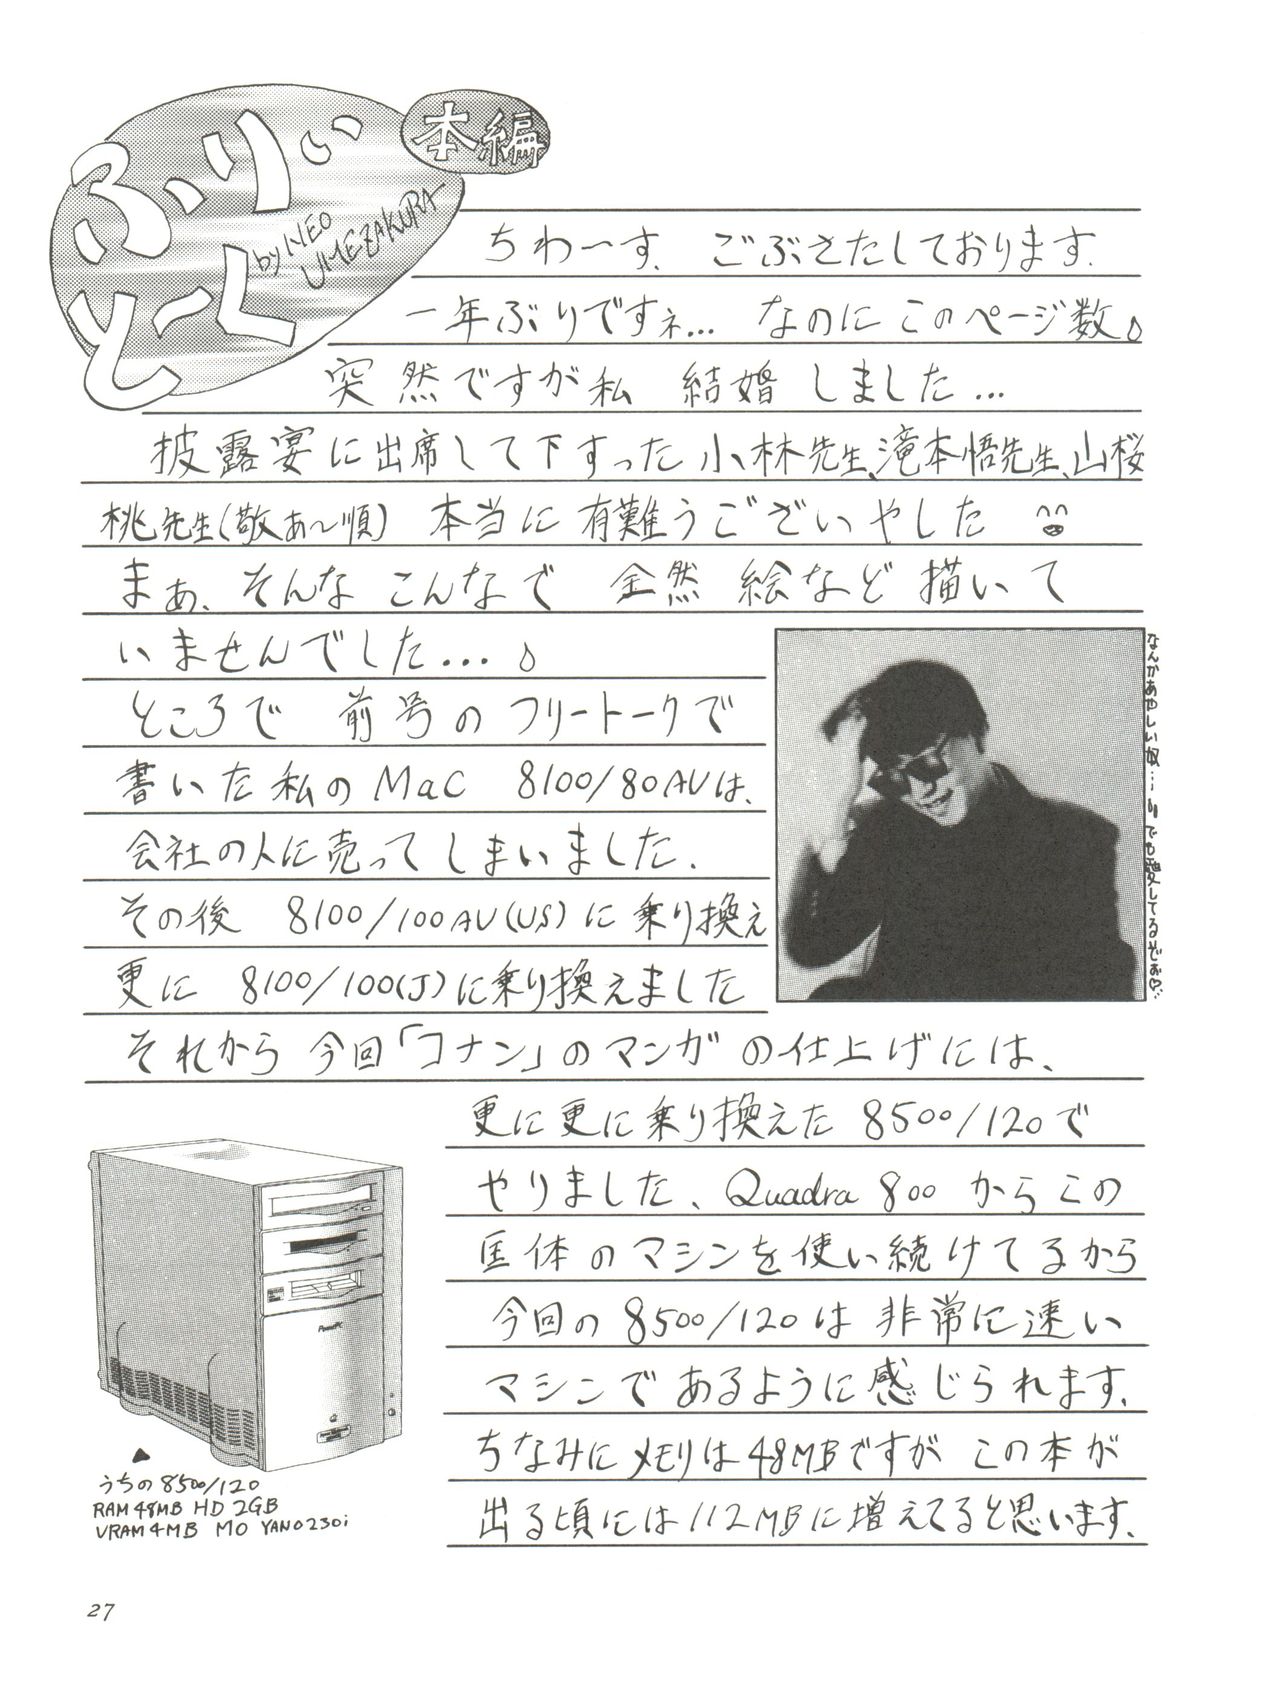 ふりぃ
とーく
本編
by NEO
UMEZAKURA
ちわ〜す、ごぶさたしております.
一年ぶりですネ… なのにこのページ数♪
突然ですが私 結婚しました…
披露宴に出席して下すった小林先生、滝本悟先生、山桜
桃先生(敬あ〜順) 本当に有難うございやした ^^
まぁ、そんなこんなで 全然 絵など描いて
いませんでした…♪
ところで 前号のフリートークで
書いた私のMac 8100/80AVは、
会社の人に売ってしまいました.
その後 8100/100AV(US)に乗り換え
更に 8100/100(J)に乗り換えました
それから今回「コナン」のマンガの仕上げには、
更に更に乗り換えた 8500/120で
やりました、Quadra 800からこの
匡体のマシンを使い続けてるから
今回の8500/120は非常に速い
マシンであるように感じられます.
ちなみにメモリは48MBですが この本が
出る頃には112MBに増えてると思います.
なんかあやしい奴…でも愛してるぞぉ♡
PowerPC
▲
うちの8500/120
RAM 48MB HD 2GB
VRAM 4MB MO YANO230i
27